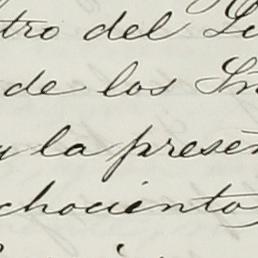 tro del
de los
y la presen
chociento